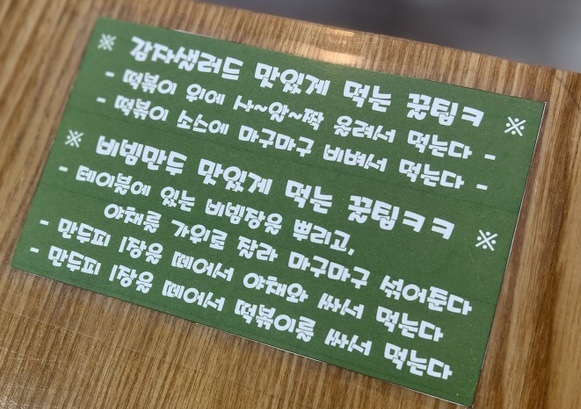 ※ 감자샐러드 맛있게 먹는 꿀팁ㅋ ※
- 떡볶이 위에 사~알~짝 올려서 먹는다 -
- 떡볶이 소스에 마구마구 비벼서 먹는다 -
※ 비빔만두 맛있게 먹는 꿀팁ㅋㅋ ※
- 테이블에 있는 비빔장을 뿌리고,
야채를 가위로 잘라 마구마구 섞어둔다
- 만두피 1장을 떼어서 야채와 싸서 먹는다
- 만두피 1장을 떼어서 떡볶이를 싸서 먹는다